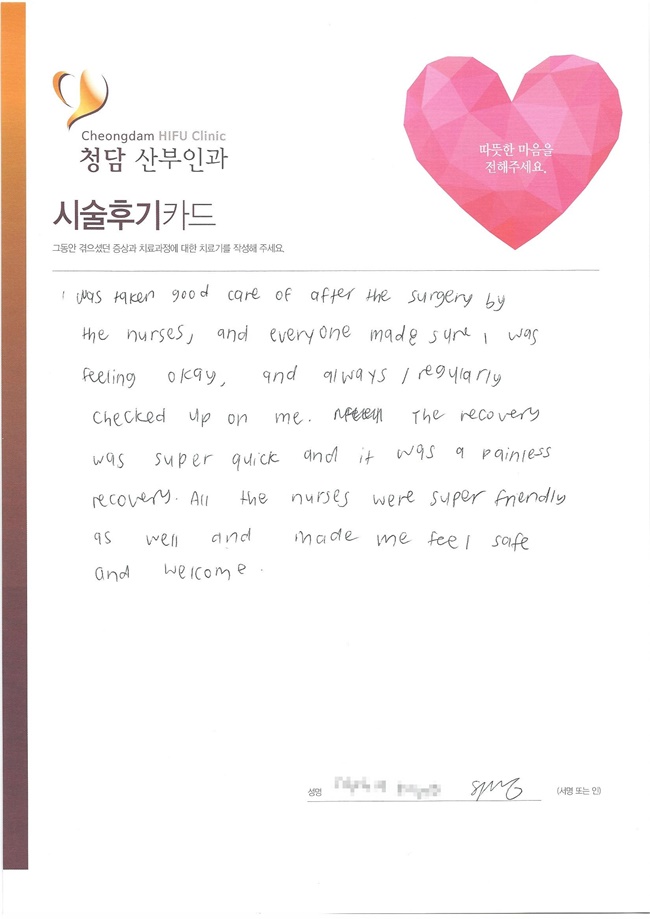 Cheongdam HIFU Clinic
청담 산부인과
따뜻한 마음을
전해주세요.
시술후기카드
그동안 겪으셨던 증상과 치료과정에 대한 치료기를 작성해 주세요.
I was taken good care of after the surgery by
the nurses, and everyone made sure I was
feeling okay, and always / regularly
checked up on me. The recovery
was super quick and it was a painless
recovery. All the nurses were super friendly
as well and made me feel safe
and welcome.
성명 (서명 또는 인)